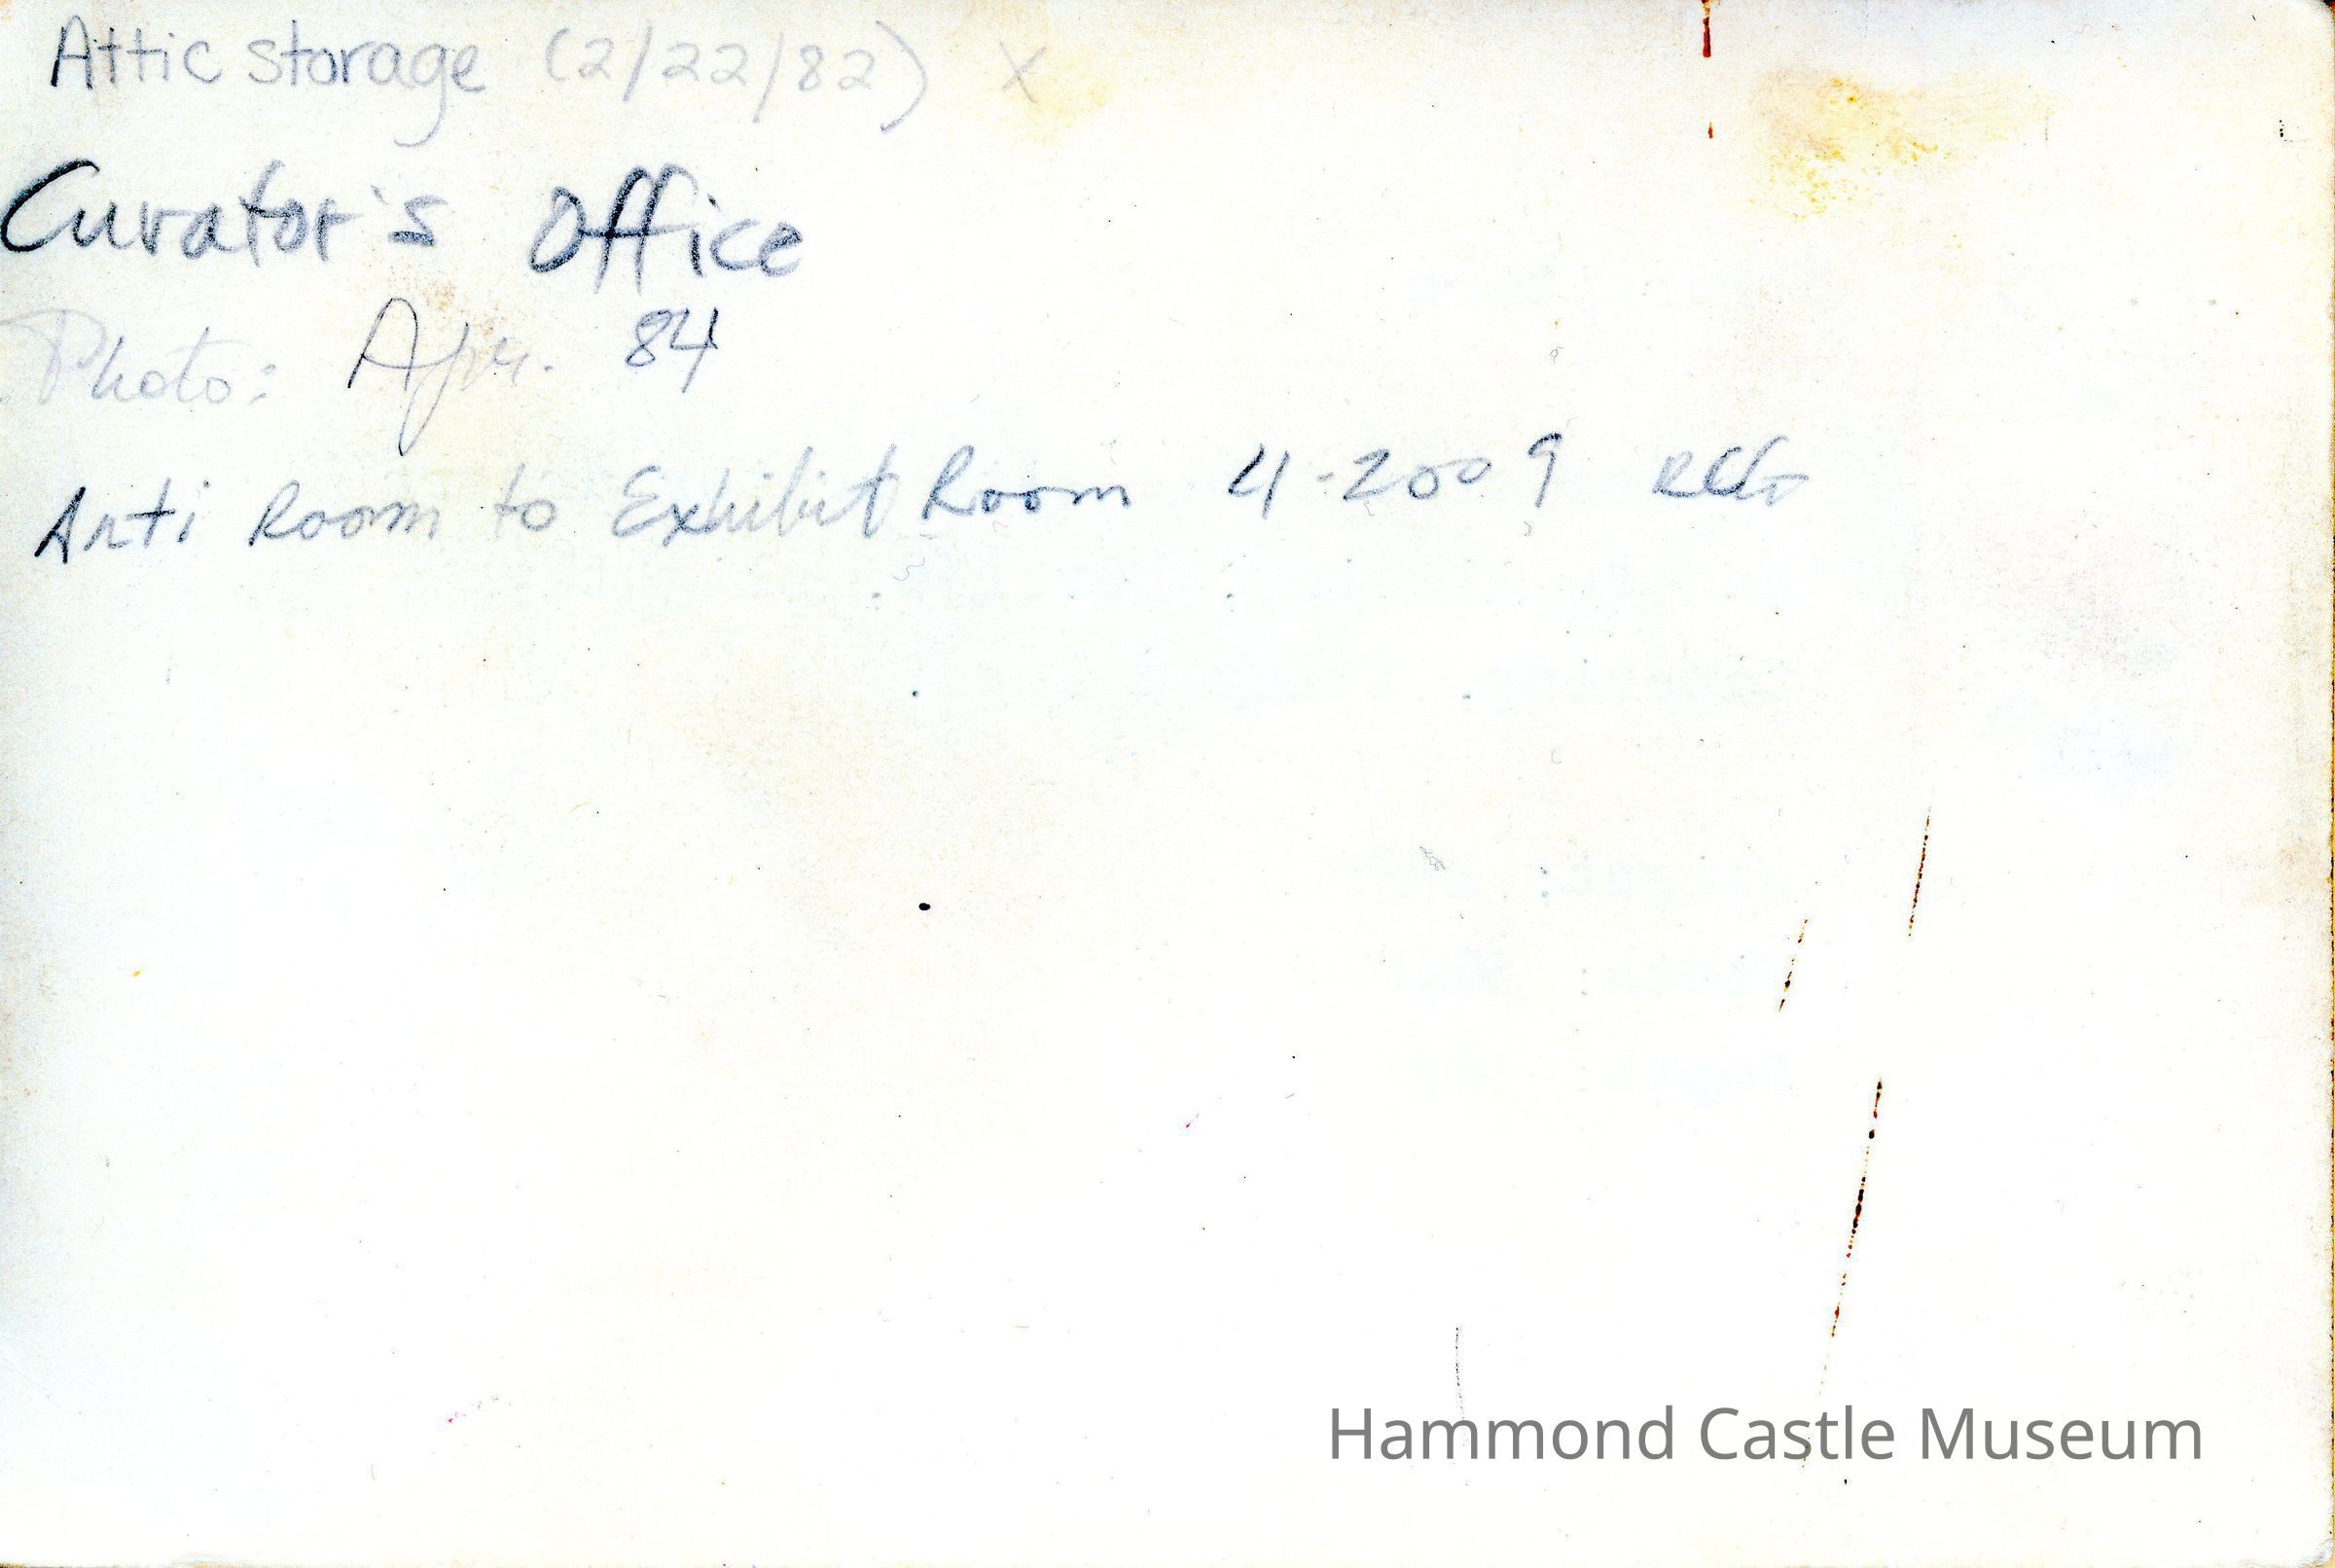 Attic storage (2/22/82) X
Curator's Office
Photo: Apr. 84
Anti Room to Exhibit Room 4-2009
Hammond Castle Museum